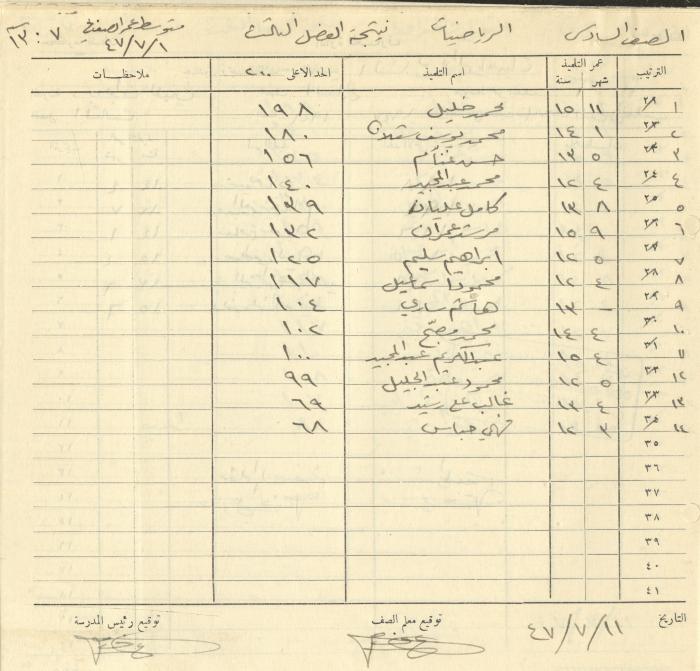 الصف السادس الرياضيات نتيجة الفصل الثالث متوسط عمر الصف في ٤٧/٧/١ ١٣:٠٧
الترتيب عمر التلميذ شهر سنة اسم التلميذ الحد الاعلى ٢٠٠ ملاحظات
١ ١١ ١٥ محمد خليل ١٩٨
٢ ١ ١٤ محمد يوسف ١٨٠
٣ ٥ ١٣ حسن غنام ١٥٦
٤ ٤ ١٢ محمد عبد المجيد ١٤٠
٥ ٨ ١٣ كامل عليان ١٣٩
٦ ٩ ١٥ مرشد عمران ١٣٢
٧ ٥ ١٢ ابراهيم سليم ١٢٥
٨ ٤ ١٢ محمود اسماعيل ١١٧
٩ - ١٣ هاشم ساري ١٠٤
١٠ ٤ ١٤ محمد مصلح ١٠٢
١١ ٤ ١٥ عبد الكريم عبد المجيد ١٠٠
١٢ ٥ ١٢ محمود عبد الجليل ٩٩
١٣ ٤ ١٣ غالب علي رشيد ٦٩
١٤ ٣ ١٢ عباس ٦٨
٣٥
٣٦
٣٧
٣٨
٣٩
٤٠
٤١
التاريخ ٤٧/٧/١١ توقيع معلم الصف توقيع رئيس المدرسة